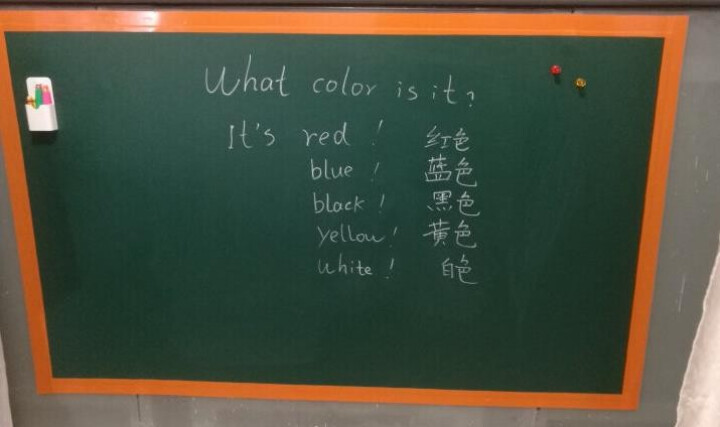 What color is it?
It's red! 红色
blue! 蓝色
black! 黑色
yellow! 黄色
white! 白色